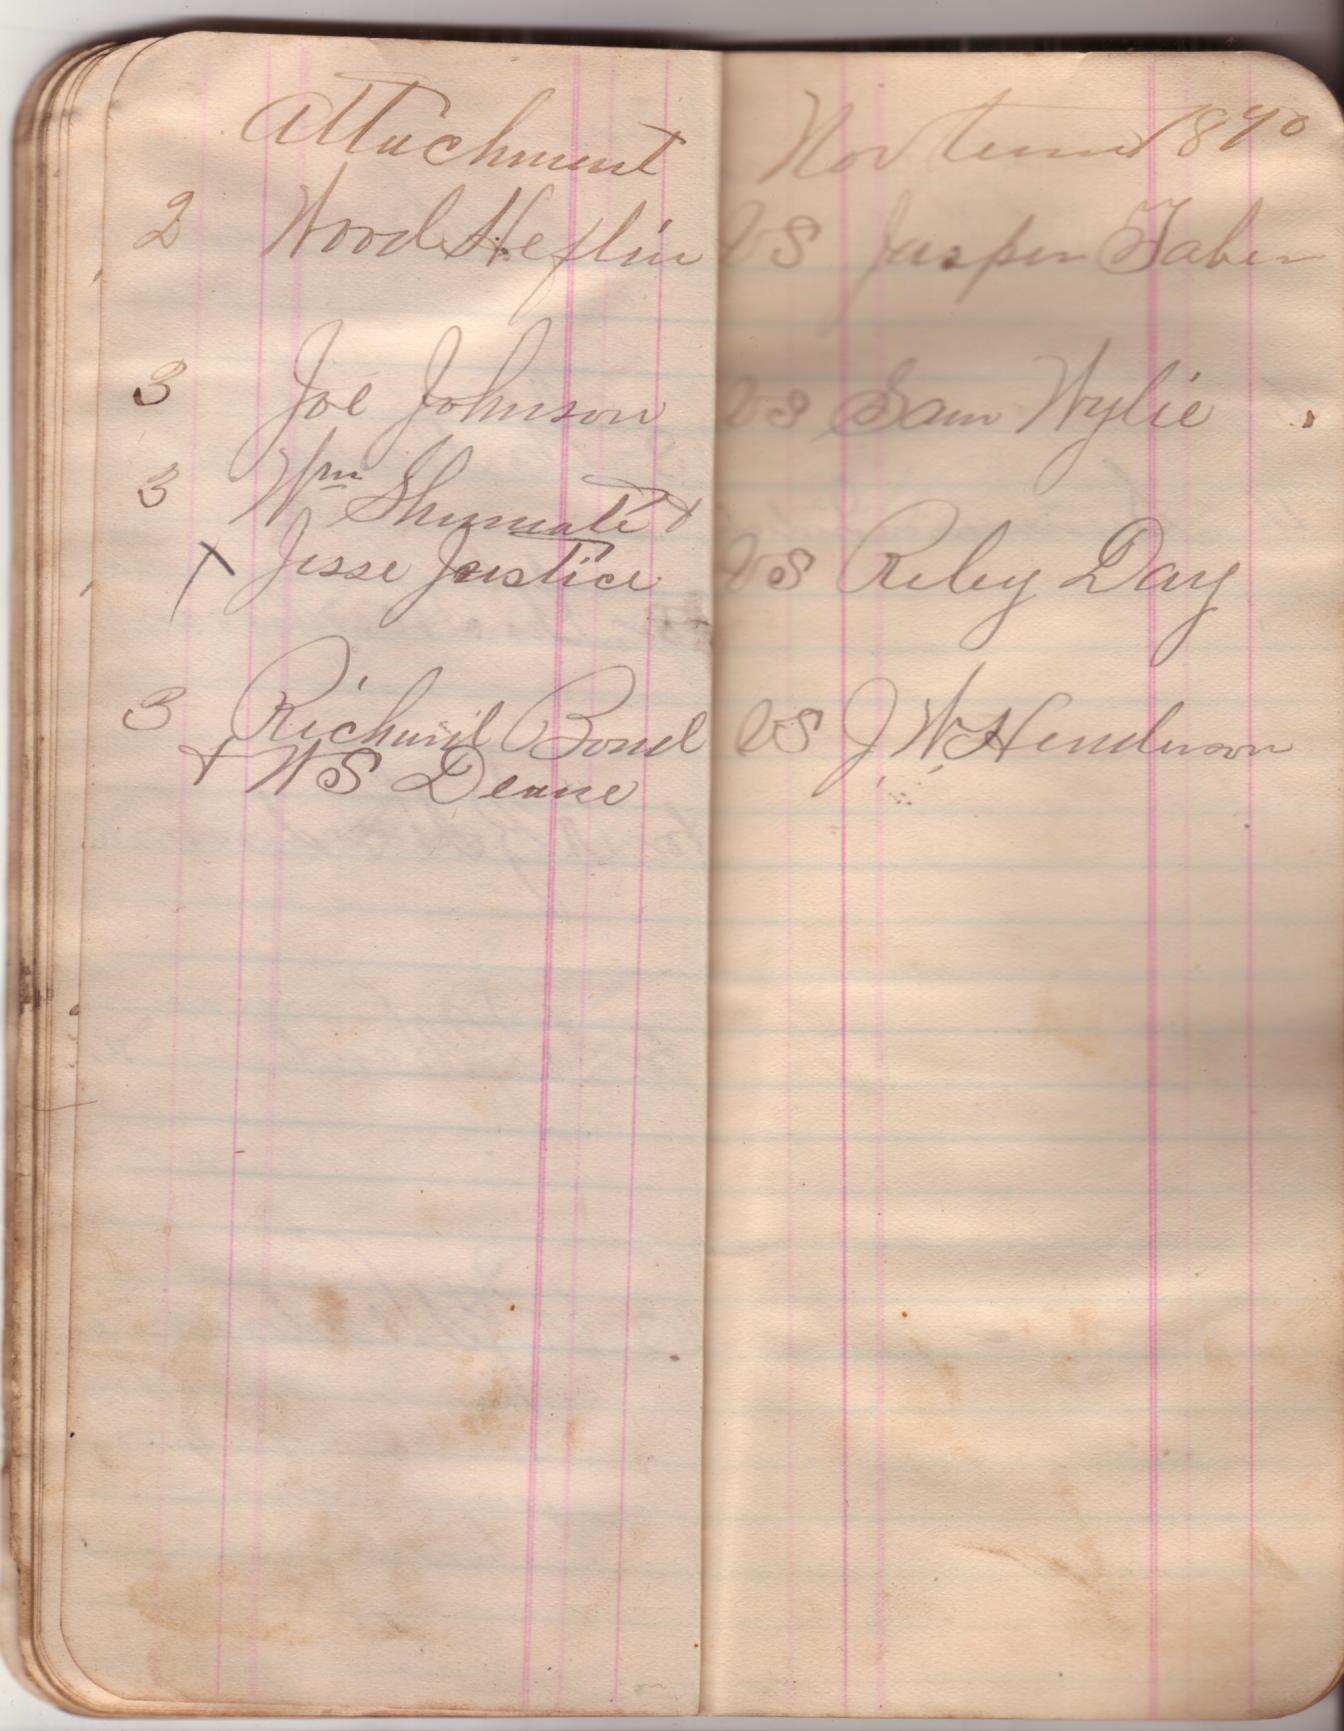 Attachment Nov term 1890
2 Wood Heflin VS Jasper Faber
3 Joe Johnson VS Sam Wylie
3 Wm Shumate +
+ Jesse Justice VS Riley Day
3 Richard Bond VS J W Henderson
+ W S Deane